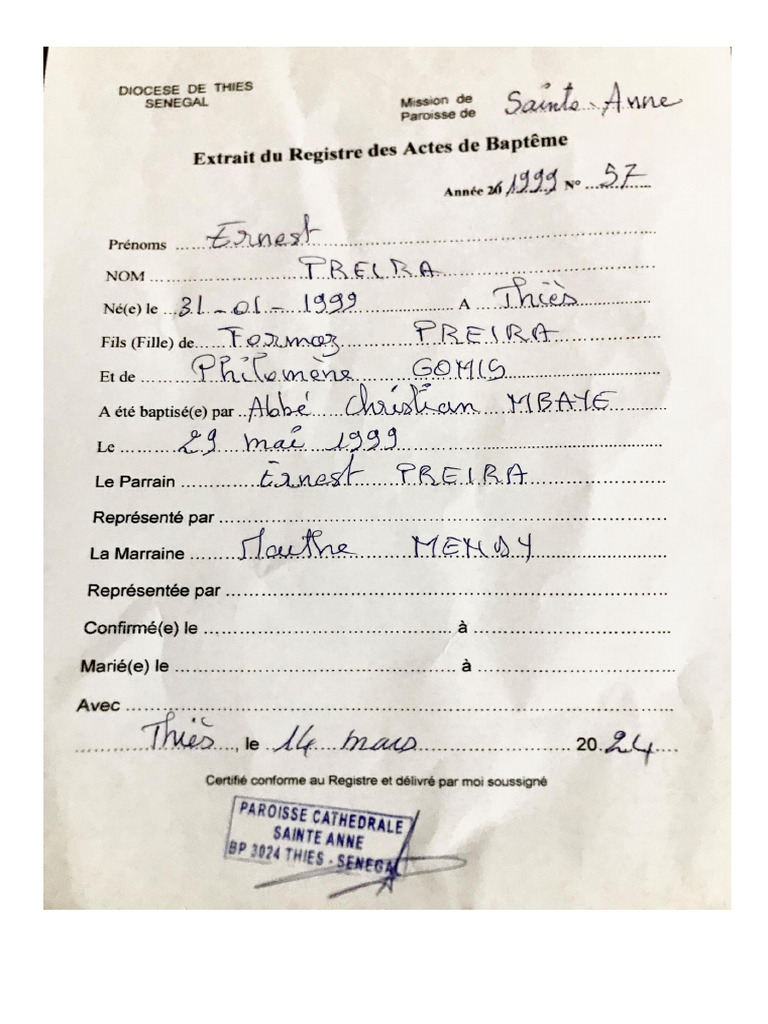 DIOCESE DE THIES
SENEGAL
Mission de
Paroisse de Sainte-Anne
Extrait du Registre des Actes de Baptême
Année 20 1999 N° 57
Prénoms Ernest
NOM PREIRA
Né(e) le 31-01-1999 A Thiès
Fils (Fille) de Formoz PREIRA
Et de Philomène GOMIS
A été baptisé(e) par Abbé Christian MBAYE
Le 29 mai 1999
Le Parrain Ernest PREIRA
Représenté par
La Marraine Marthe MENDY
Représentée par
Confirmé(e) le à
Marié(e) le à
Avec
Thiès, le 14 mars 2024
Certifié conforme au Registre et délivré par moi soussigné
PAROISSE CATHEDRALE
SAINTE ANNE
BP 3024 THIES - SENEGAL